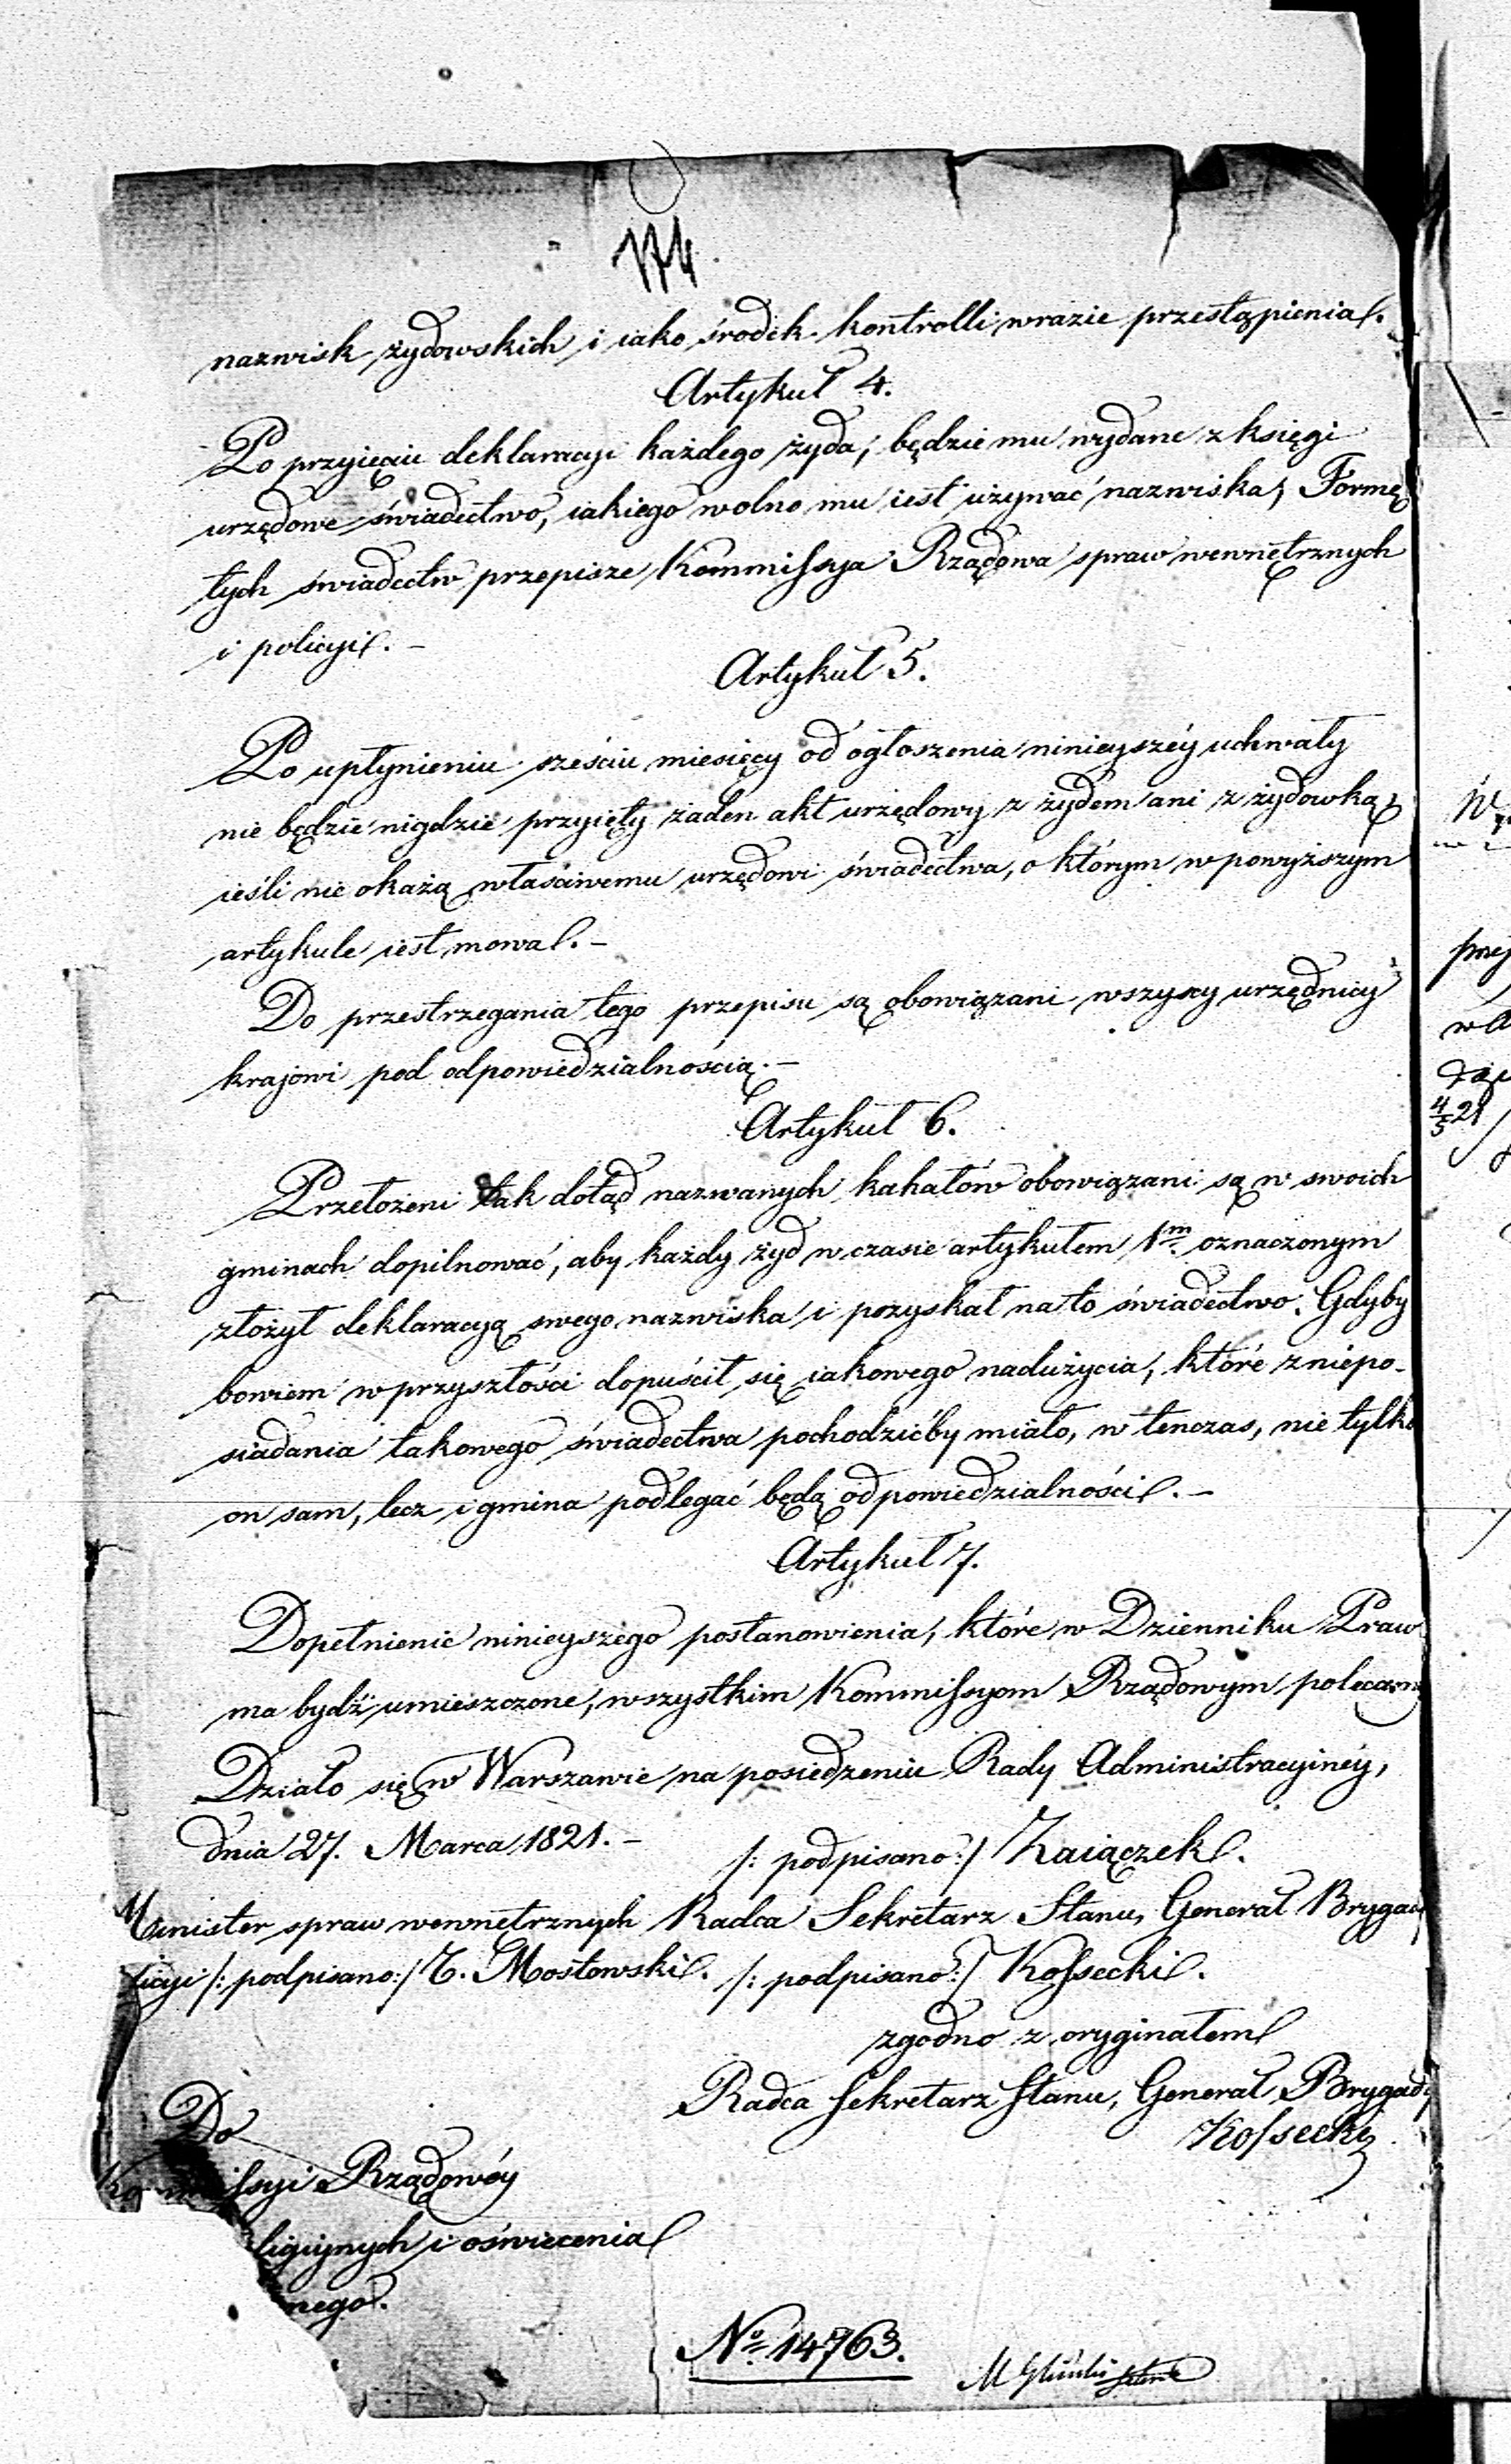 174.
nazwisk żydowskich i iako środek kontrolli w razie przestąpienia.
Artykuł 4.
Po przyięciu deklaracyi każdego żyda, będzie mu wydane z księgi
urzędowe świadectwo, iakiego wolno mu iest używać nazwiska; Formę
tych świadectw przepisze Kommissya Rządowa spraw wewnętrznych
i policyi. –
Artykuł 5.
Po upłynieniu sześciu miesięcy od ogłoszenia ninieyszéy uchwały
nie będzie nigdzie przyięty żaden akt urzędowy z żydem ani z żydowką,
ieśli nie okażą właściwemu urzędowi świadectwa, o którym w powyższym
artykule iest mowa. –
Do przestrzegania tego przepisu są obowiązani wszyscy urzędnicy
krajowi pod odpowiedzialnością. –
Artykuł 6.
Przełożeni tak dotąd nazwanych kahałów obowiązani są w swoich
gminach dopilnować, aby każdy żyd w czasie artykułem 1m. oznaczonym
złożył deklaracyą swego nazwiska i pozyskał na to świadectwo. Gdyby
bowiem w przyszłości dopuścił się iakowego nadużycia, które z niepo-
siadania takowego świadectwa pochodzićby miało, w tenczas, nie tylko
on sam, lecz i gmina podlegać będą odpowiedzialności. –
Artykuł 7.
Dopełnienie ninieyszego postanowienia, które w Dzienniku Praw
ma bydź umieszczone, wszystkim Kommissyom Rządowym polecamy
Działo się w Warszawie na posiedzeniu Rady Administracyinéy,
dnia 27. Marca 1821. –
/: podpisano :/ Zaiączek.
Minister spraw wewnętrznych
Radca Sekretarz Stanu, Generał Brygady
licyi /: podpisano :/ T. Mostowski.
/: podpisano :/ Kossecki.
zgodno z oryginałem
Radca Sekretarz Stanu, Generał Brygady
Kossecki
Do
Kommissyi Rządowéy
ligiynych i oświecenia
nego.
No. 14763.